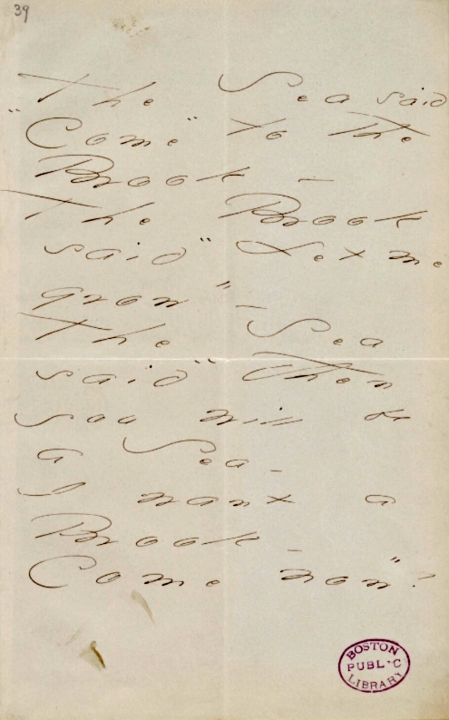 39
The Sea said
"Come" to the
Brook –
The Brook
said "Let me
grow" –
The Sea
said "Then
you will be
a Sea –
I want a
Brook –
Come now"!
BOSTON
PUBLIC
LIBRARY